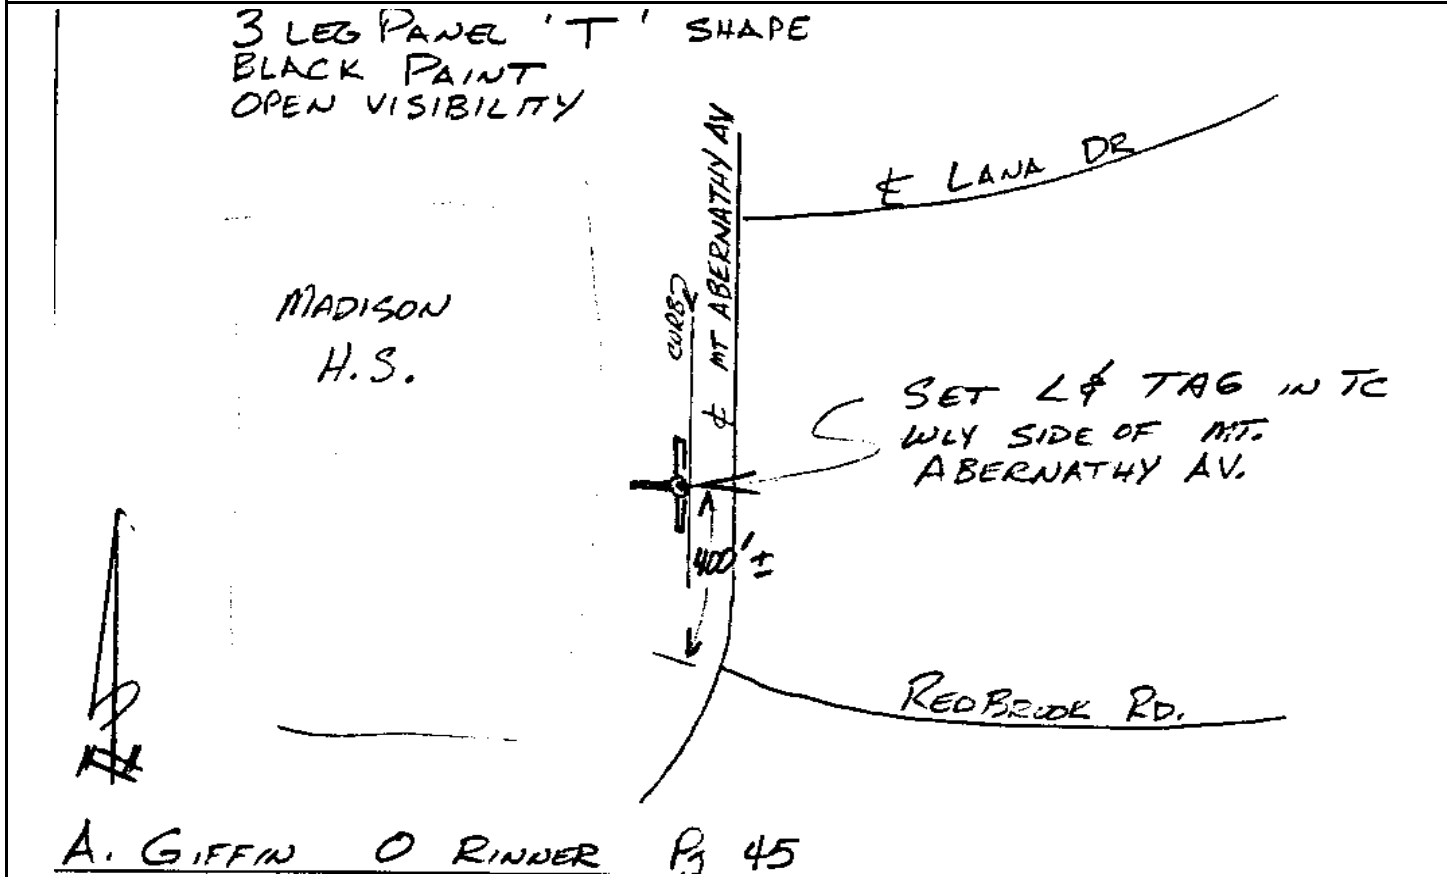 3 LEG PANEL 'T' SHAPE
BLACK PAINT
OPEN VISIBILITY
℄ LANA DR
℄ MT ABERNATHY AV
CURB
MADISON
H.S.
SET L& TAG IN TC
WLY SIDE OF MT.
ABERNATHY AV.
400'±
REDBROOK RD.
N
A. GIFFIN O RINNER Pg 45